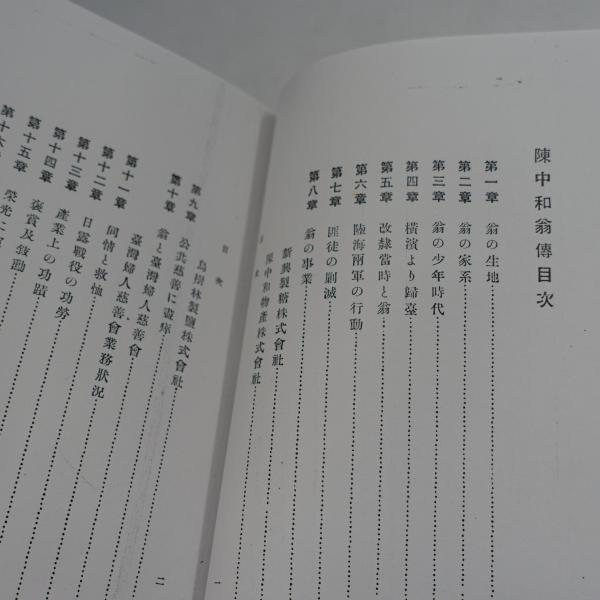 陳中和翁傳目次
第一章 翁の生地
第二章 翁の家系
第三章 翁の少年時代
第四章 橫濱より歸臺
第五章 改隸當時と翁
第六章 陸海兩軍の行動
第七章 匪徒の剿滅
第八章 翁の事業
新興製糖株式會社
陳中和物產株式會社
目次
一
烏樹林製鹽株式會社
第九章 公共慈善に盡瘁
第十章 翁と臺灣婦人慈善會
臺灣婦人慈善會業務狀況
第十一章 同情と救恤
第十二章 日露戰役の功勞
第十三章 產業上の功蹟
第十四章 褒賞及敍勳
第十五章 榮光に
第十六
二